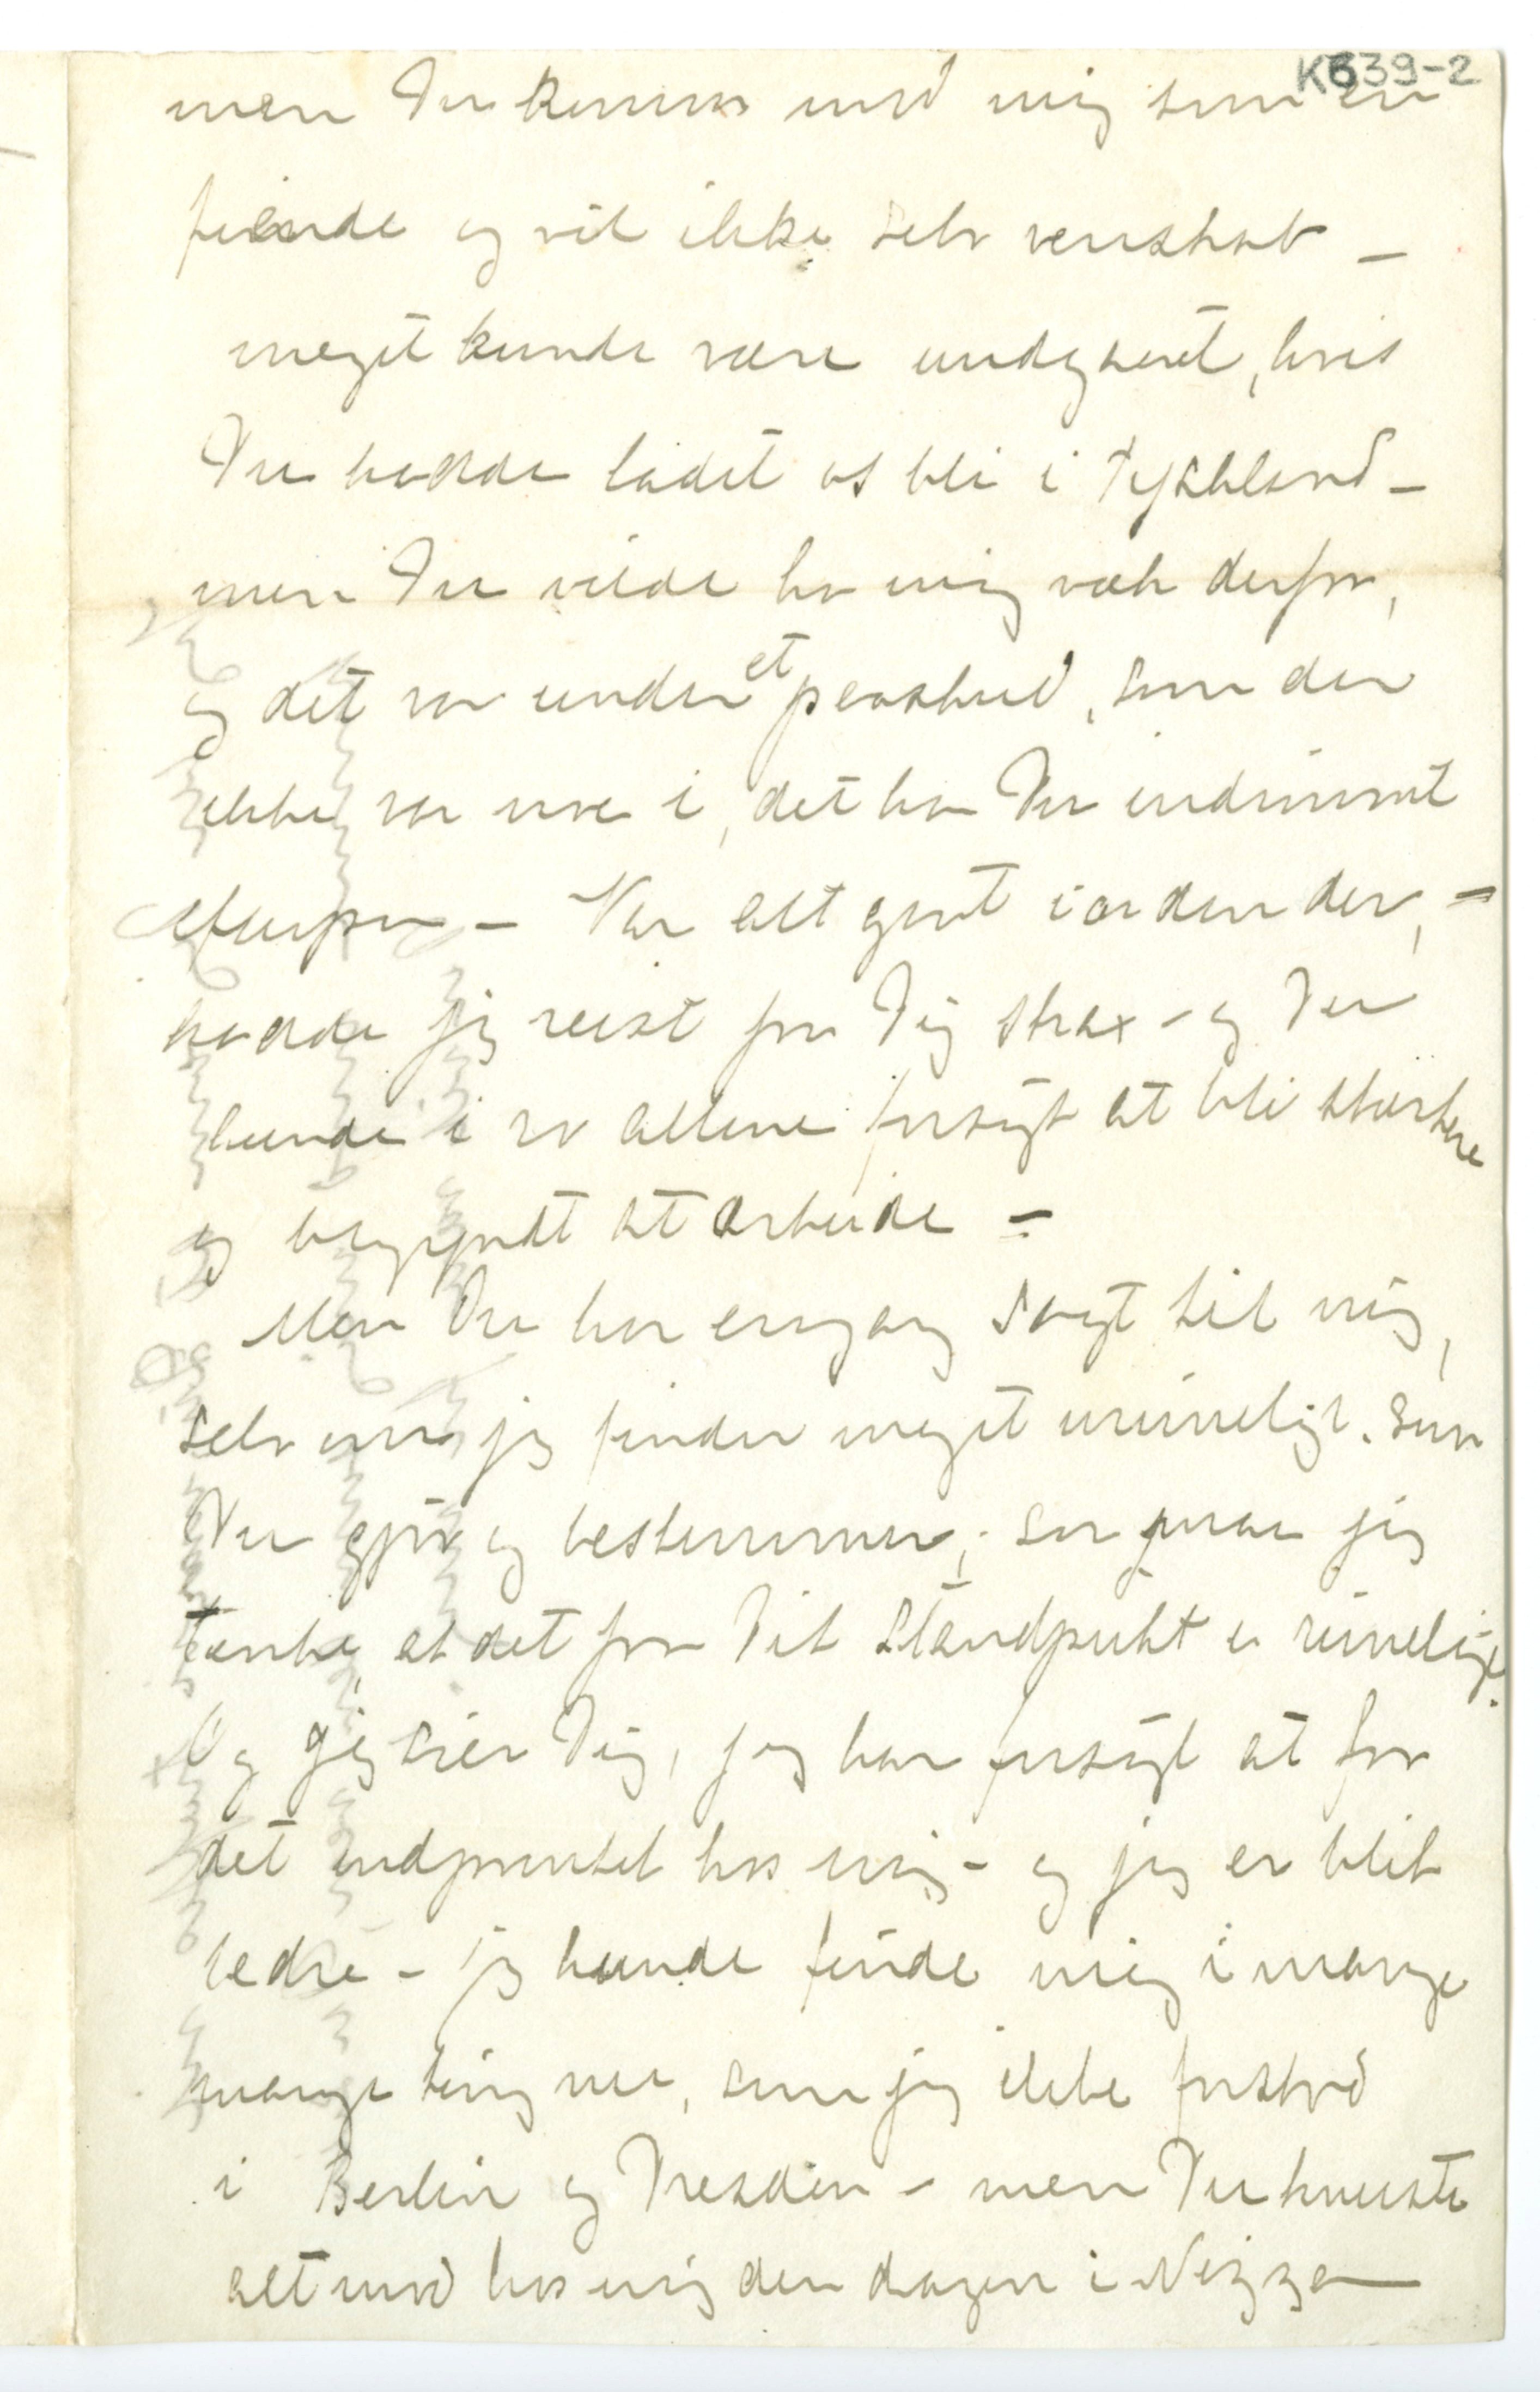 K639-2
men Du kommer mod mig som en
fiende og vil ikke selv venskab –
meget kunde være undgaaet, hvis
Du hadde ladet os bli i Tyskland –
men Du vilde ha mig væk derfra,
og det var under et paaskud, som der
ikke var noe i, det har Du indrømmet
efterpaa – Var alt gjort iorden der, –
hadde jeg reist fra Dig strax – og Du
kunde i ro allene forsøgt at bli stærkere
og begyndt at arbeide –
Men Du har engang sagt til mig,
selv om jeg finder meget urimeligt, som
Du gjør og bestemmer, saa maa jeg
tænke, at det fra Dit Standpukt er rimeligt.
Og jeg sier Dig, jeg har forsøgt at faa
det indprentet hos mig – og jeg er blit
bedre – jeg kunde finde mig i mange
mange ting nu, som jeg ikke forstod
i Berlin og Dresden – men Du knuste
alt mod hos mig den dagen i Nizza –